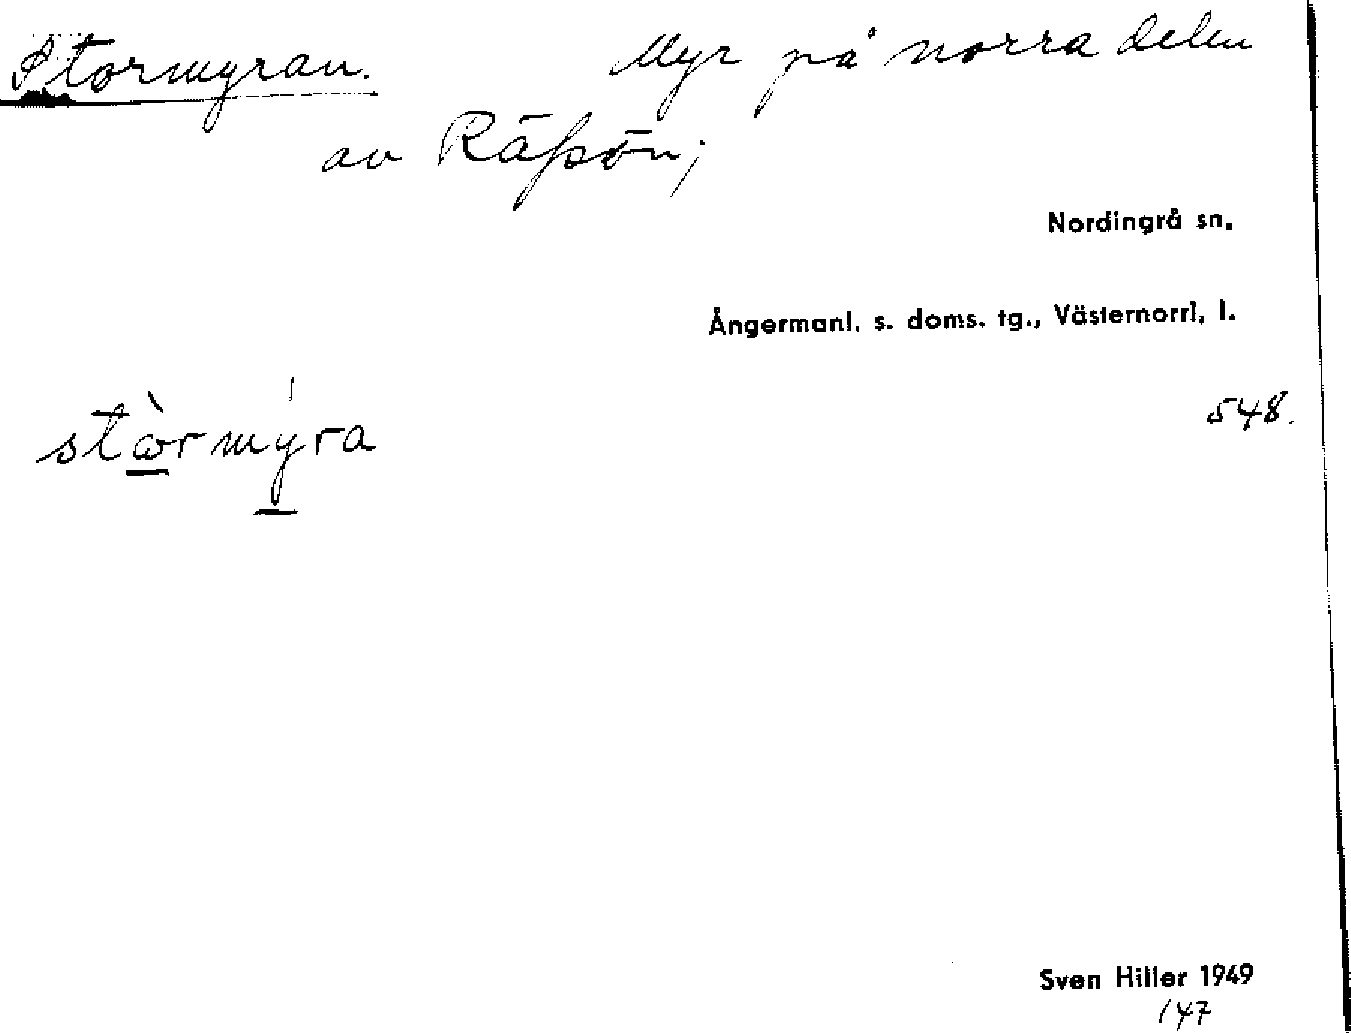 Stormyran. Myr på norra delen
av Räfsön;
Nordingrå sn.
Ångermanl. s. doms. tg., Västernorrl. l.
548.
stὼrmy̍ra
Sven Hiller 1949
147